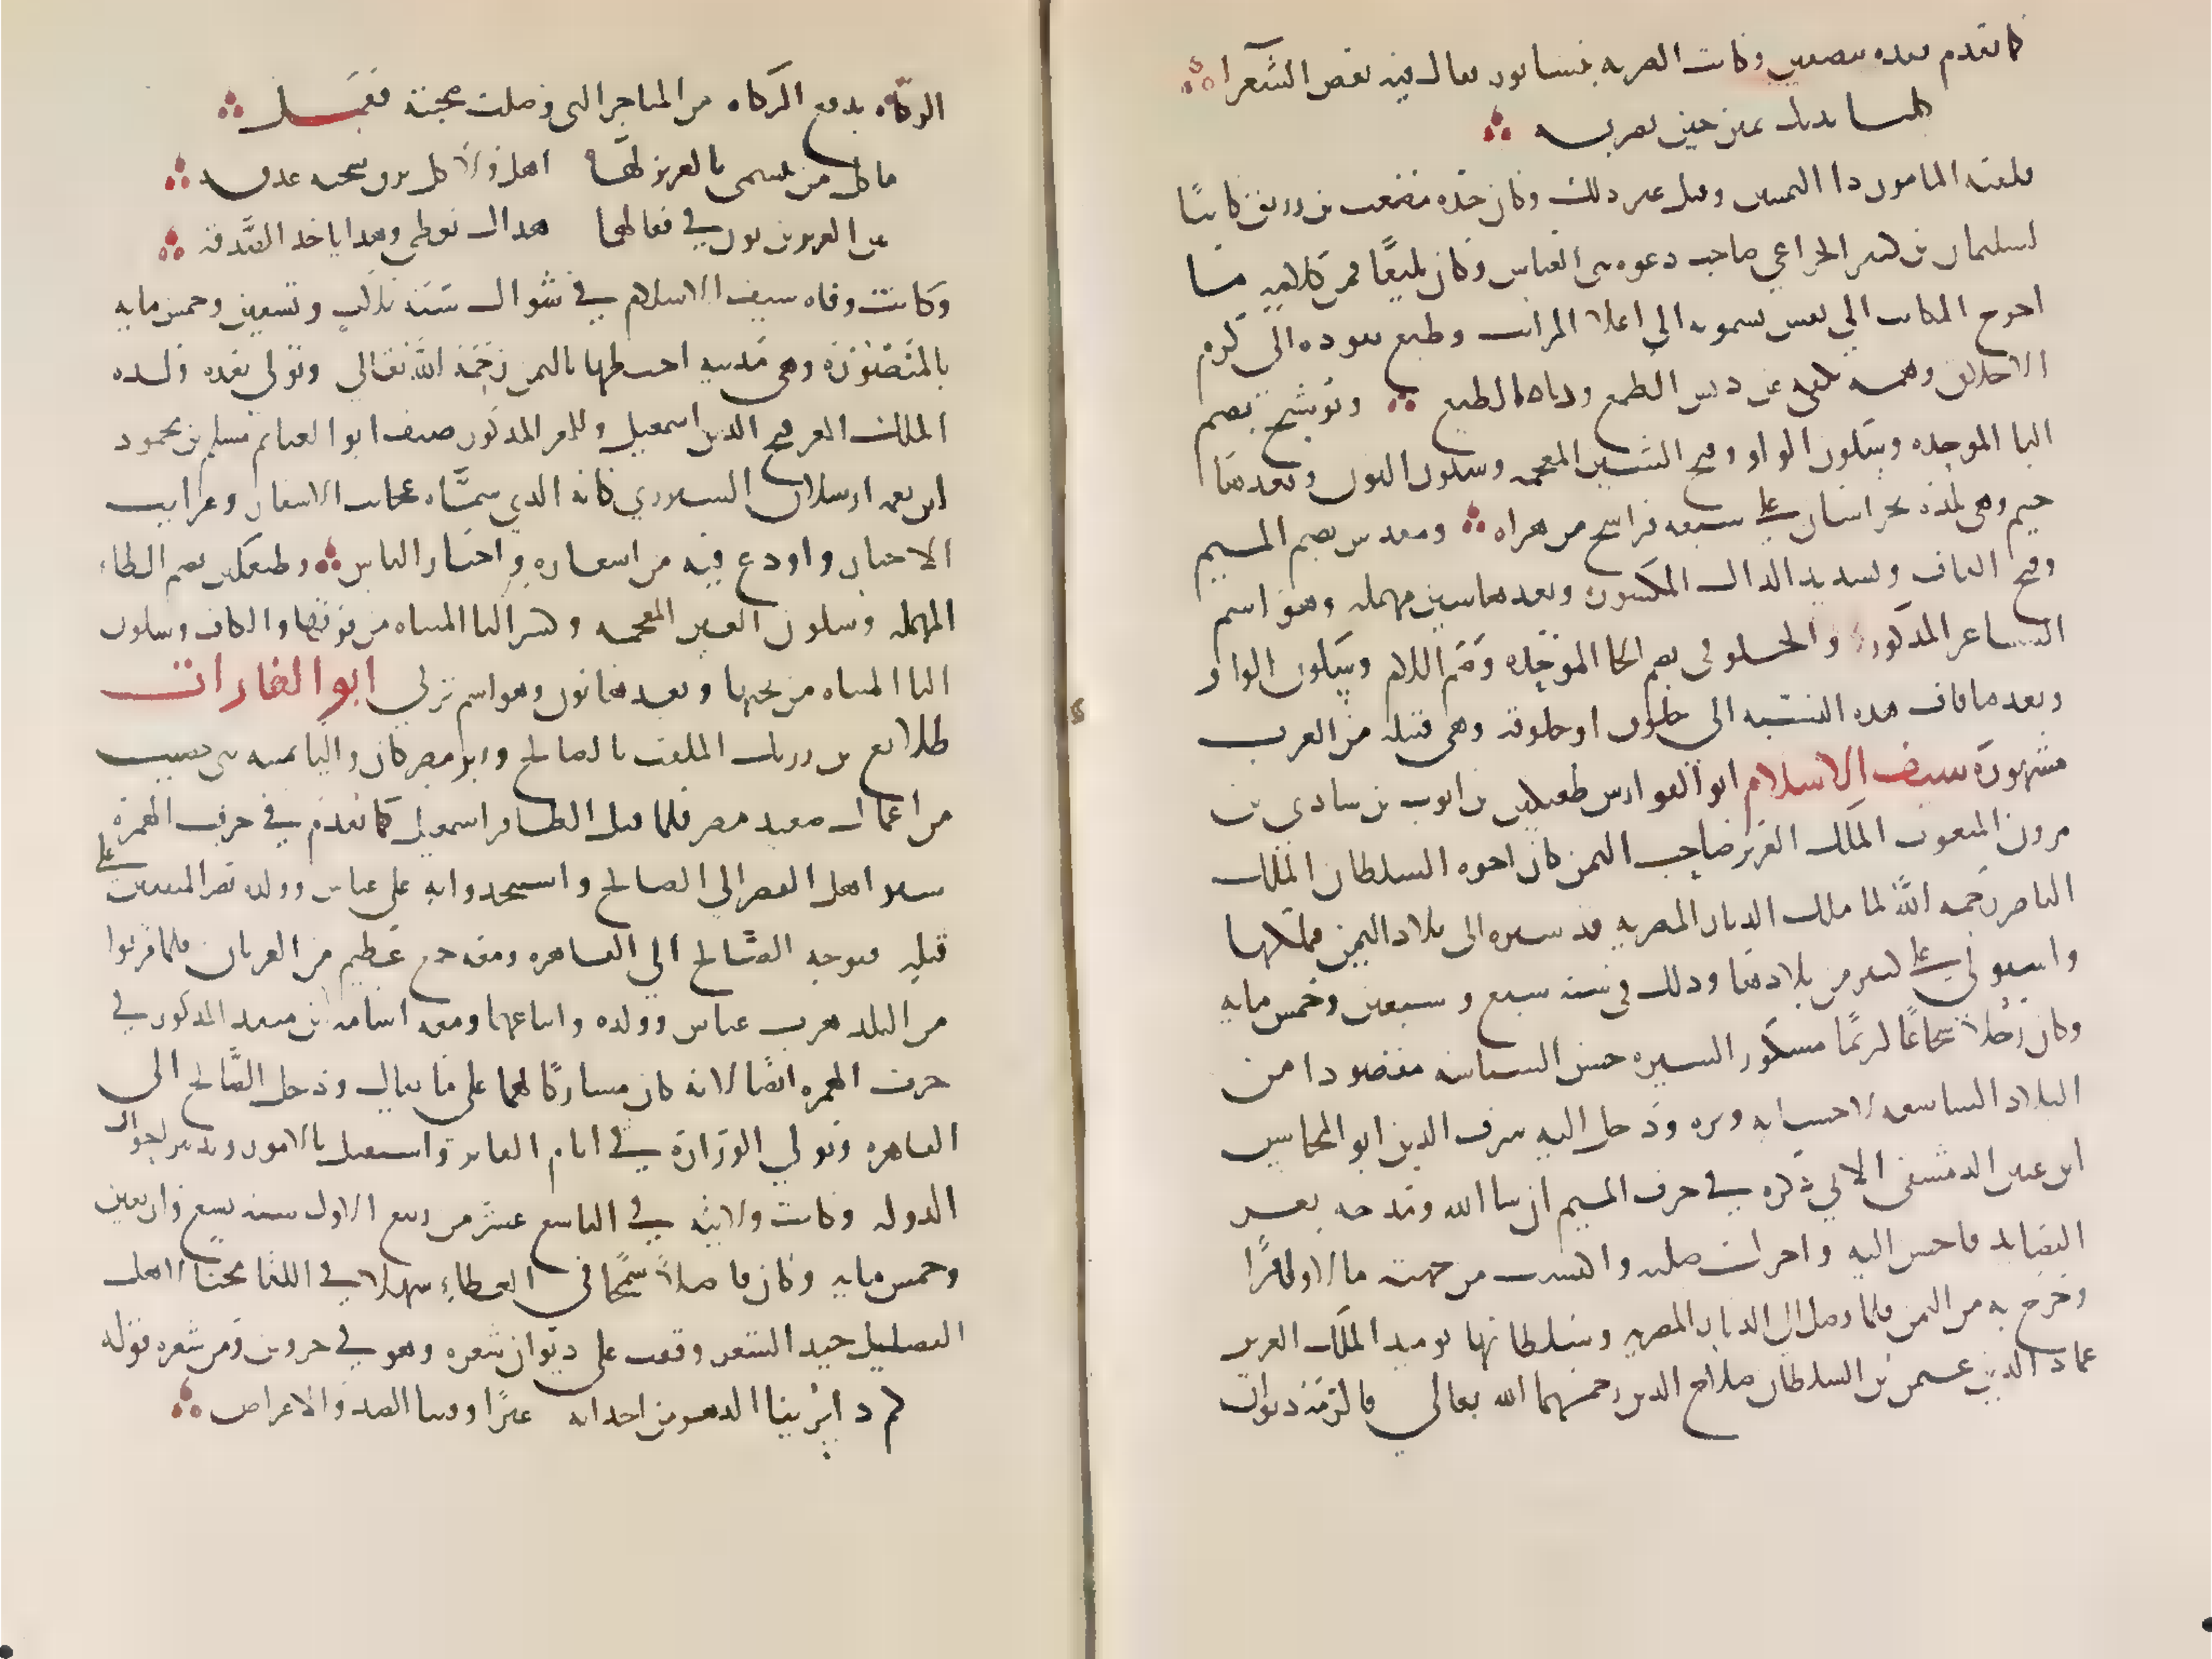 كما تقدم بعده بنصفين وكانت الضربه بيساره فقال فيه بعض الشعرا
كلتا يديك يمين حين تضربه
فلقبه المامون ذا اليمينين وقيل غير ذلك وكان جده مصعب بن رزيق كاتبا
لسليمان بن كثير الخزاعي صاحب دعوه بني العباس وكان بليغا فمن كلامه ما
احوج الكاتب الي نفس تسمو به الي اعلا المراتب وطبع يقوده الي كرم
الاخلاق وهمه تكفه عن دنس الطمع ودناه الطبع وبوشنج بضم
البا الموحده وسكون الواو وفتح الشين المعجمه وسكون النون وبعدها
جيم وهي بلده بخراسان علي سبعه فراسخ من هراه ومقدس بضم الميم
وفتح القاف وتشديد الدال المكسوره وبعدها سين مهمله وهو اسم
الشاعر المذكور والخلوقي بضم الخا الموحده وضم اللام وسكون الواو
وبعدها قاف هذه النسبه الي خلوق او خلوقه وهي قبيله من العرب
مشهورة سيف الاسلام ابو الفوارس طغتكين بن ايوب بن شادي بن
مرون المنعوت الملك العزيز صاحب اليمن كان اخوه السلطان الملك
الناصر رحمه الله لما ملك الديار المصريه قد سيره الي بلاد اليمن فملكها
واستولي علي كثير من بلادها وذلك في سنه سبع وسبعين وخمس مايه
وكان رجلا شجاعا كريما مشكور السيره حسن السياسه مقصودا من
البلاد الشاسعه لاحسانه وبره ودخل اليه شرف الدين ابو المحاسن
ابن عنين الدمشقي الاتي ذكره في حرف الميم ان شا الله ومدحه بغر
القصايد فاحسن اليه واجزل صلته واكتسب من جهته مالا وافرا
وخرج به من اليمن فلما وصل الي الديار المصريه وسلطانها يوميذ الملك العزيز
عماد الدين عثمن بن السلطان صلاح الدين رحمهما الله تعالي فالزمه ديوان
الزكاه بدفع الزكاه من المتاجر التي وصلت صحبته فعمل
ما كل من يتسمى بالعزيز لها اهل ولا كل برق سحبه غدقه
بين العزيزين بون في فعالهما هذاك يعطي وهذا ياخذ الصدقه
وكانت وفاه سيف الاسلام في شوال سنة ثلاث وتسعين وخمس مايه
بالمنصوره وهي مدينه اختطها باليمن رحمه الله تعالي وتولي بعده ولده
الملك المعز فتح الدين اسمعيل وللمعز المذكور صنف ابو الغنايم مسلم بن محمود
ابن نعمه ارسلان الشيزري كتابه الذي سماه عجايب الاسفار وغرايب
الاخبار واودع فيه من اشعاره واخبار الناس وطغتكين بضم الطاء
المهمله وسكون الغين المعجمه وكسر التا المثناه من فوقها والكاف وسكون
اليا المثناه من تحتها وبعدها نون وهو اسم تركي ابو الغارات
طلايع بن رزيك الملقب بالصالح وزير مصر كان واليا بمنيه بني خصيب
من اعمال صعيد مصر فلما قتل الظافر اسمعيل كما تقدم في حرف الهمزة
سير اهل القصر الي الصالح واستنجدوا به علي عباس وولده نصر المتفقين علي
قتله فتوجه الصالح الي القاهره ومعه جمع عظيم من العربان فلما قربوا
من البلد هرب عباس وولده واتباعهما ومعه اسامه بن منقذ المذكور في
حرف الهمزه ايضا لانه كان مشاركا لهما علي ما يقال ودخل الصالح الي
القاهره وتولي الوزارة في ايام الفايز واستقل بالامور وتدبير احوال
الدوله وكانت ولايته في التاسع عشر من ربيع الاول سنه تسع واربعين
وخمس مايه وكان فاضلا سمحا في العطاء سهلا في اللقا محبا لاهل
الفضل جيد الشعر وقفت علي ديوان شعره وهو في جزوين ومن شعره قوله
كم ذا يرينا الدهر من احداثه عبرا وفينا الصد والاعراض